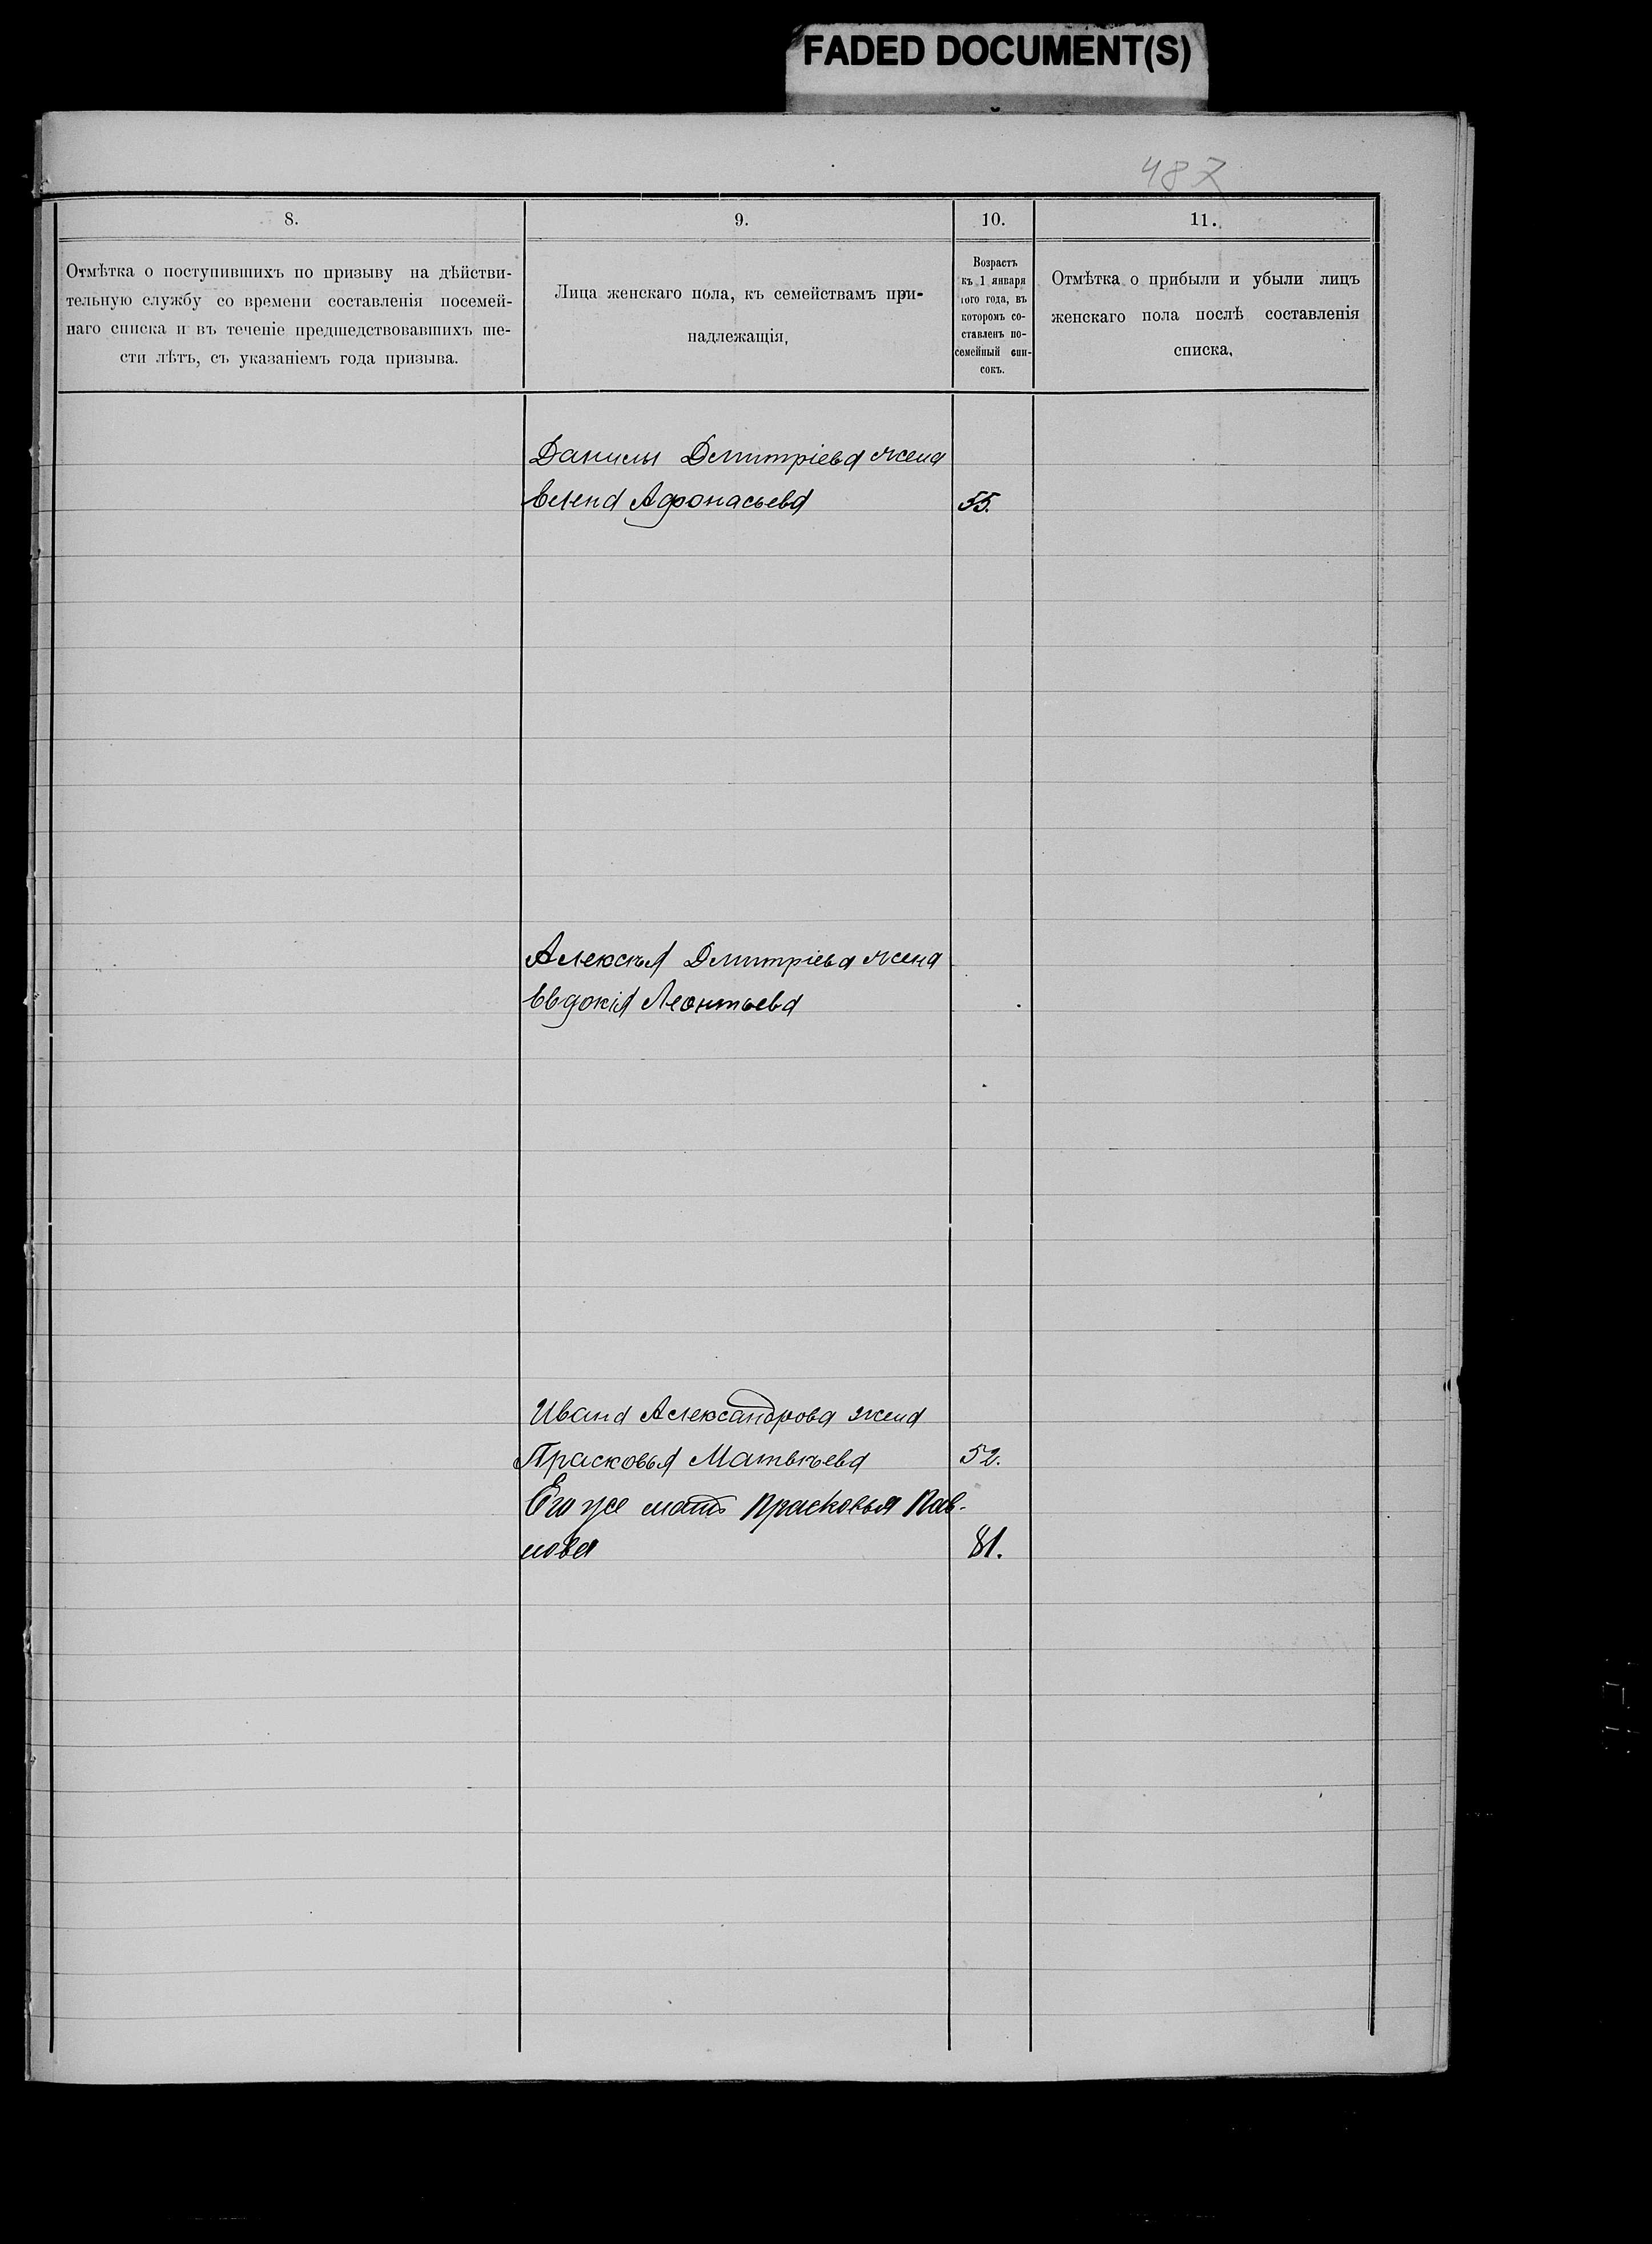 FADED DOCUMENT(S)
487
8.
9.
10.
11.
Отмѣтка о поступившихъ по призыву на дѣйстви-
тельную службу со времени составленія посемей-
наго списка и въ теченіе предшедствовавшихъ ше-
сти лѣтъ, съ указаніемъ года призыва.
Лица женскаго пола, къ семействамъ при-
надлежащія,
Возрастъ
къ 1 января
того года, въ
которомъ со-
ставленъ по-
семейный спи-
сокъ.
Отмѣтка о прибыли и убыли лицъ
женскаго пола послѣ составленія
списка,
Данилы Дмитріева жена
Елена Афонасьева 55.
Алексѣя Дмитріева жена
Евдокія Леонтьева
Ивана Александрова жена
Прасковья Матвѣева 52.
Его же мать Прасковья Пав-
лова 81.